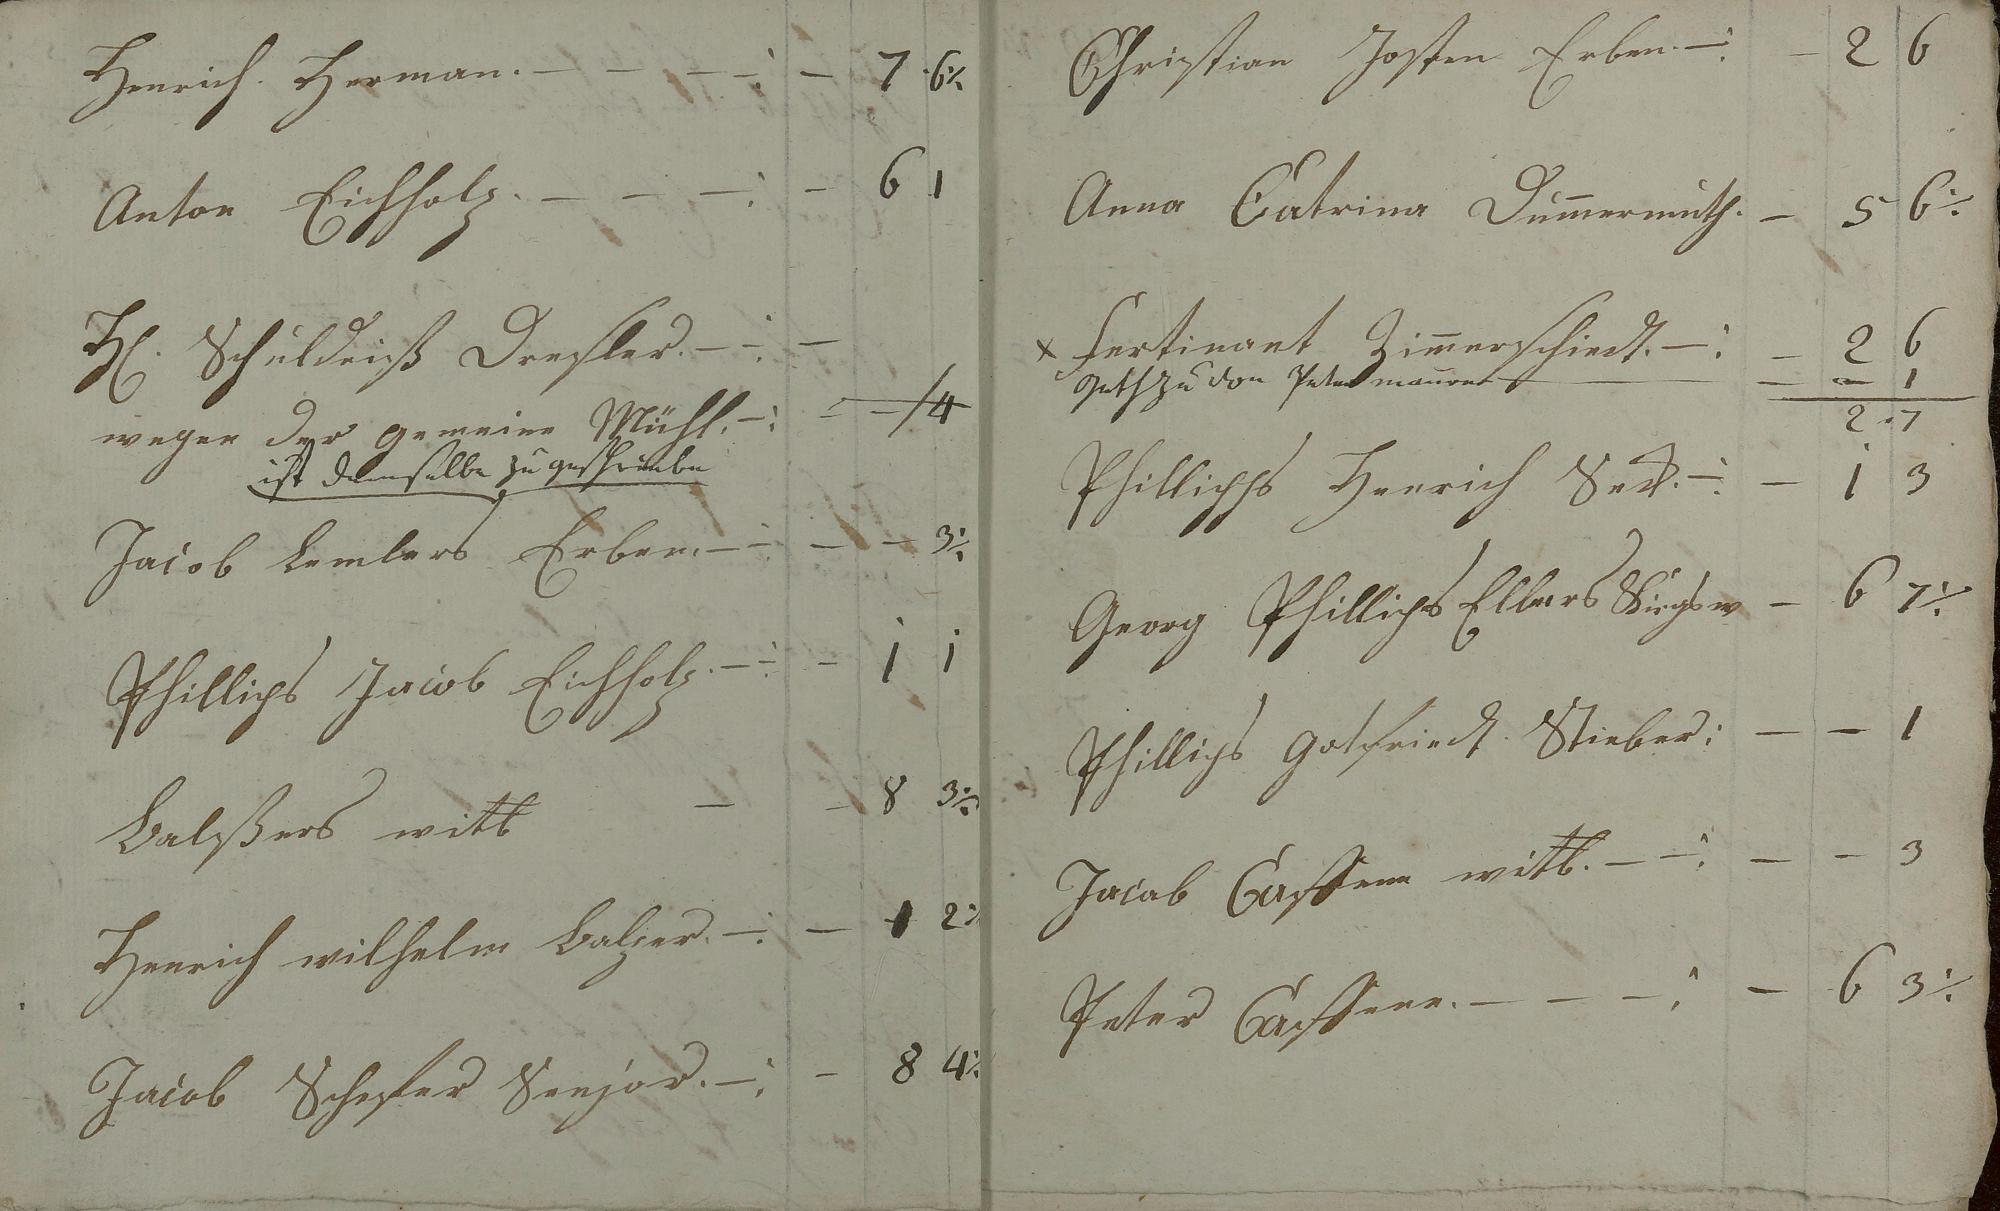 Henrich. Herman. — — — — : — 7 6 ·/.
Anton Eichholz. — — — — : — 6 1
H. Schuldeiß Dresler. — : —
wegen der gemeine Mühl. — : — — 4
ist demselbe zu geschriebe
Jacob Lemlers Erben. — — : — — 3 ·/.
Phillips Jacob Eichholz. — : — 1 1
Balßers witb — — 8 3 ·/.
Henrich wilhelm Balzer. — : — 1 2 ·/.
Jacob Schefer Senjor. — : — 8 4 ·/.
Christian Josten Erben. — : — 2 6
Anna Catrina Dum̄ermuth. — 5 6 ·/.
x Fertinant Zim̄erschiedt. — : — 2 6
geth zu von Peter maurer — — — 1
2 · 7
Phillipps Henrich — : — 1 3
Georg Phillips Ellers — 6 7 ·/.
Phillips Gotfriedt Stieber : — — 1
Jacab witb. — — : — — 3
Peter — — — : — 6 3 ·/.